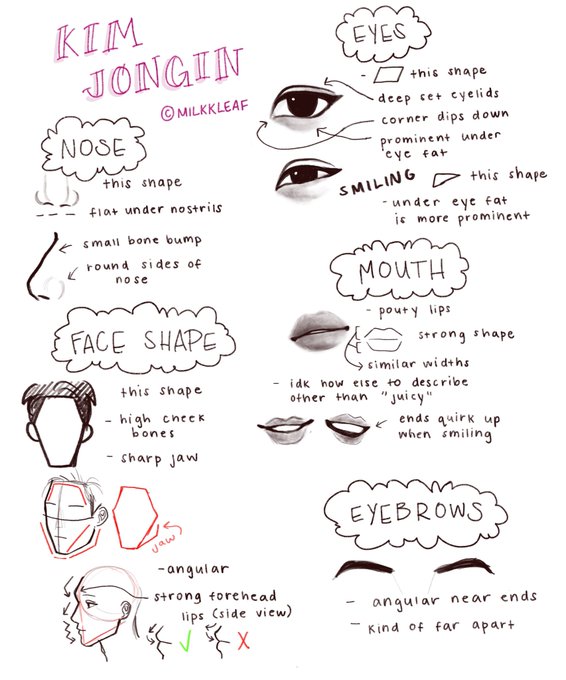 KIM
JONGIN
© MILKKLEAF
NOSE
this shape
flat under nostrils
small bone bump
round sides of
nose
FACE SHAPE
this shape
- high cheek
bones
- sharp jaw
jaw
-angular
- strong forehead
lips (side view)
EYES
- this shape
deep set eyelids
corner dips down
prominent under
eye fat
SMILING
this shape
- under eye fat
is more prominent
MOUTH
- pouty lips
strong shape
similar widths
- idk how else to describe
other than "juicy"
ends quirk up
when smiling
EYEBROWS
- angular near ends
- kind of far apart